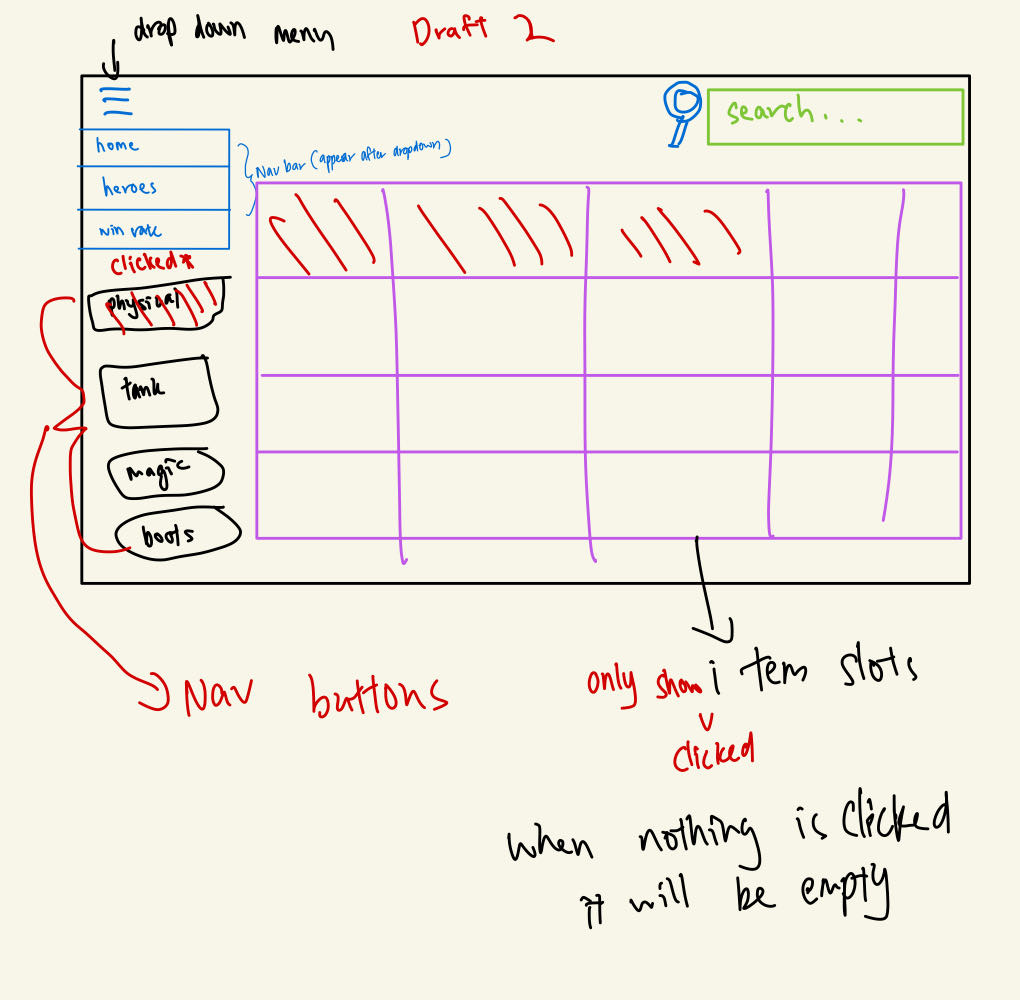 drop down menu Draft 2
search...
home
Nav bar (appear after dropdown)
heroes
win rate
clicked*
physical
tank
magic
boots
Nav buttons
only show item slots
clicked
when nothing is clicked
it will be empty